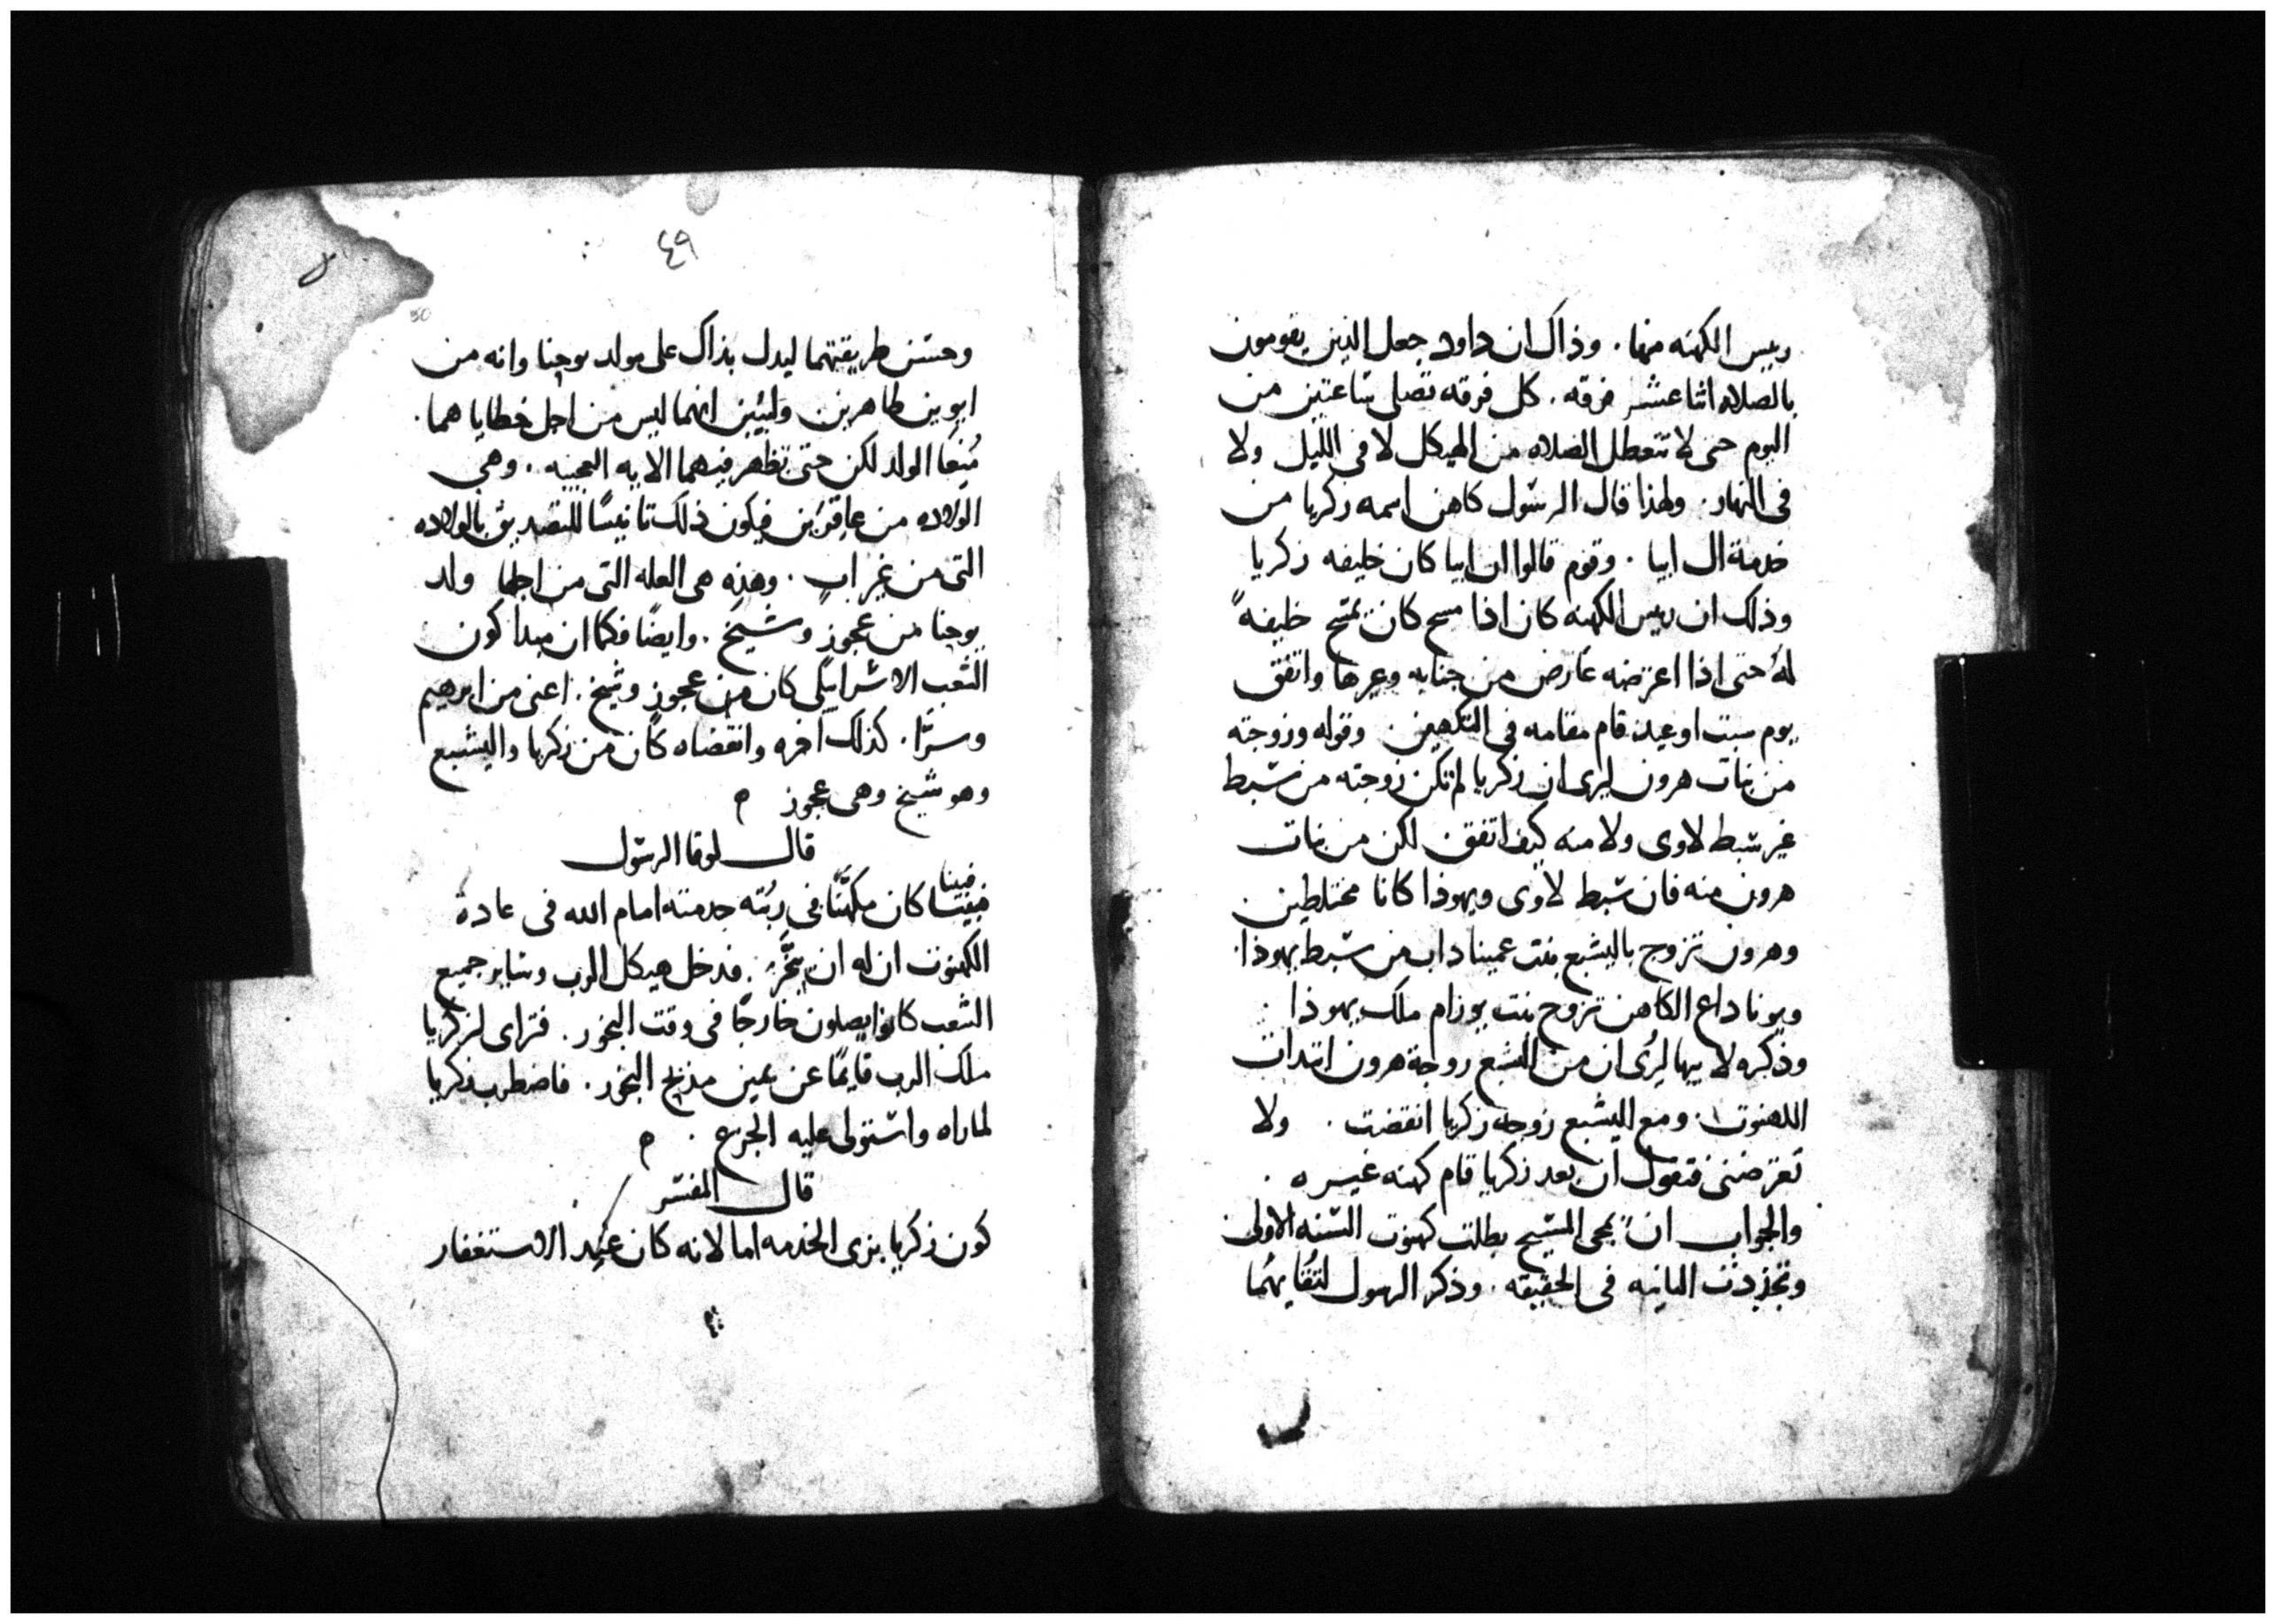 ريس الكهنه منها. وذاك ان داود جعل الذين يقومون
بالصلاه اثنا عشر فرقه. كل فرقه تصلى ساعتين من
اليوم حتى لا تتعطل الصلاه من الهيكل لا فى الليل ولا
فى النهار. ولهذا قال الرسول كاهن اسمه زكريا من
خدمة ال ابيا. وقوم قالوا ان ابيا كان خليفه زكريا
وذلك ان ريس الكهنه كان اذا مسح كان يمسح خليفهً
له حتى اذا اعترضه عارض من جنابه وغيرها واتفق
يوم سبت او عيد قام مقامه فى التكهين. وقوله وزوجته
من بنات هرون ليرى ان زكريا لم تكن زوجته من سبط
غير سبط لاوى ولا منه كيف اتفق لكن من بنات
هرون منه فان سبط لاوى ويهوذا كانا مختلطين.
وهرون تزوج باليشبع بنت عميناداب من سبط يهوذا.
ويوناداع الكاهن تزوج بنت يورام ملك يهوذا.
وذكره لابيها ليُرى ان من اليشبع زوجة هرون ابتدات
الكهنوت. ومع اليشبع زوجة زكريا انقضت. ولا
تعترضنى فتقول ان بعد زكريا قام كهنه غيره.
والجواب ان بمجى المسيح بطلت كهنوت السنه الاولى
وتجددت الثانيه فى الحقيقه. وذكر الرسول
٤٩
50
وحسن طريقتهما ليدل بذاك على مولد يوحنا وانه من
ابوين طاهرين وليبين انهما ليس من اجل خطاياهما.
مُنعا الولد لكن حتى تظهر فيهما الايه العجيبه. وهى
الولاده من عاقرين فيكون ذلك تانيسًا للتصديق بالولاده
التى من غير اب. وهذه هى العله التى من اجلها ولد
يوحنا من عجوز وشيخ. وايضًا فكما ان مبدا كون
الشعب الاسراييلى كان من عجوز وشيخ. اعنى من ابرهيم
وسرّا. كذلك اخره وانقضاه كان من زكريا واليشبع
وهو شيخ وهى عجوز ه
قال لوقا الرسول
فبينا
كان مكهنًا فى رتبته خدمته امام الله فى عادة
الكهنوت ان له ان يبخّر. فدخل هيكل الرب وساير جميع
الشعب كانوا يصلون خارجًا فى وقت البخور. فتراى لزكريا
ملك الرب قايمًا عن يمين مذبح البخور. فاضطرب زكريا
لما راه واستولى عليه الجزع. ه
قال المفسر
كون زكريا بزى الخدمه اما لانه كان عيد الاستغفار